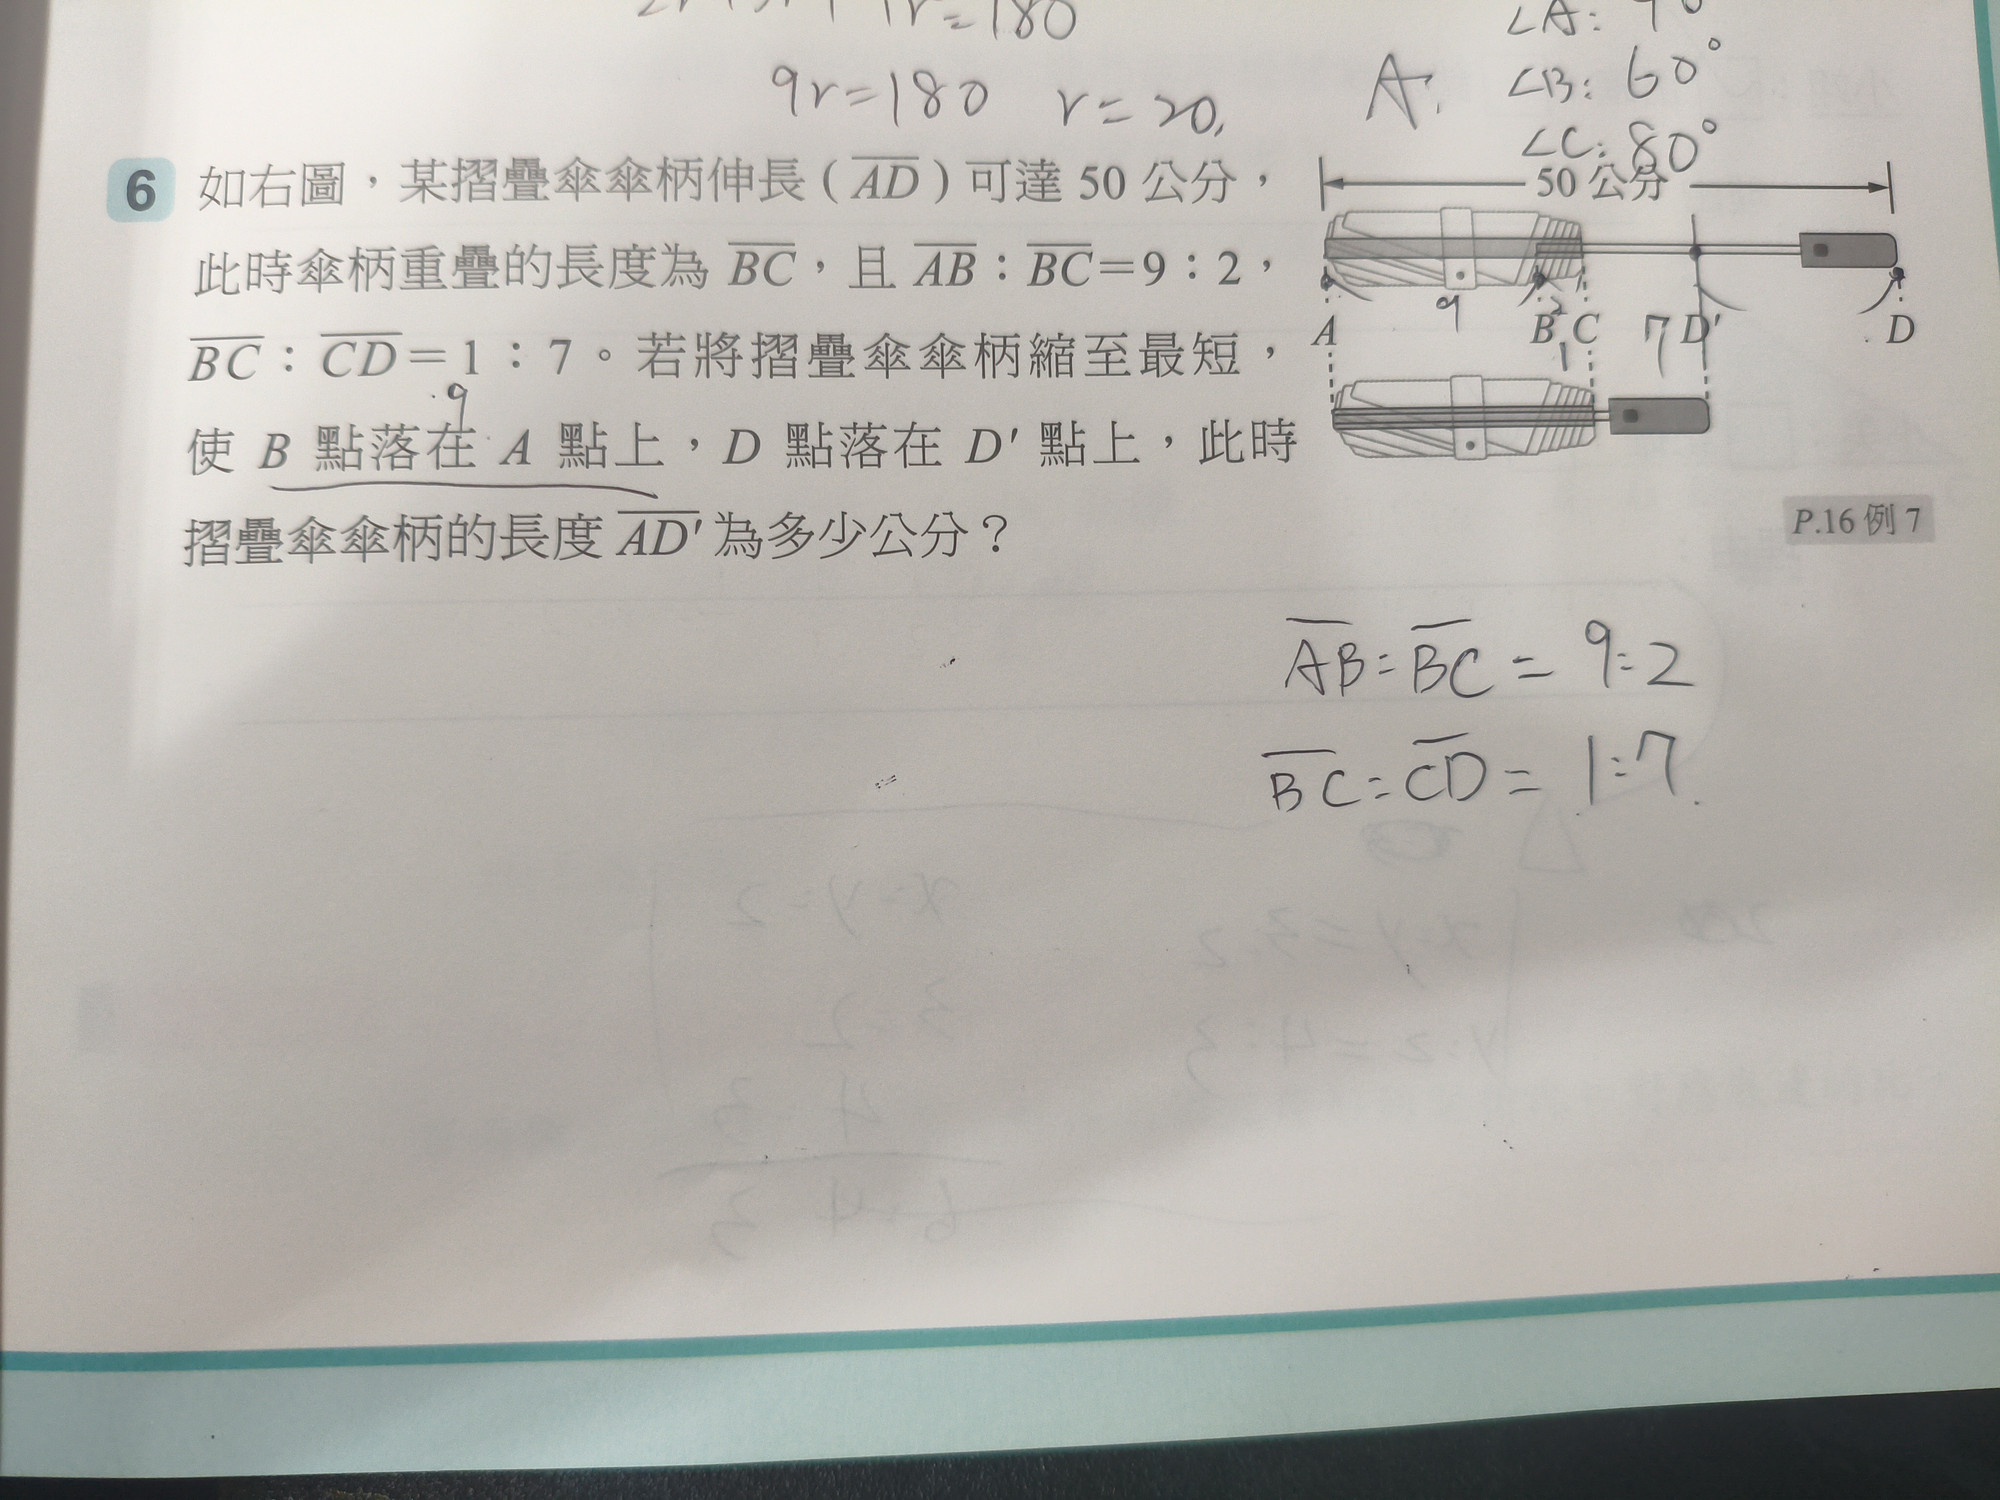 =180
∠A:
9r=180 r=20,
A: ∠B: 60°
∠C: 80°
6 如右圖,某摺疊傘傘柄伸長(AD)可達 50 公分,
此時傘柄重疊的長度為 BC,且 AB:BC=9:2,
BC:CD=1:7。若將摺疊傘傘柄縮至最短,
9
使 B 點落在 A 點上,D 點落在 D' 點上,此時
摺疊傘傘柄的長度 AD' 為多少公分?
50 公分
9 2
A B C 7 D' D
1
P.16 例 7
AB:BC=9:2
BC:CD=1:7.